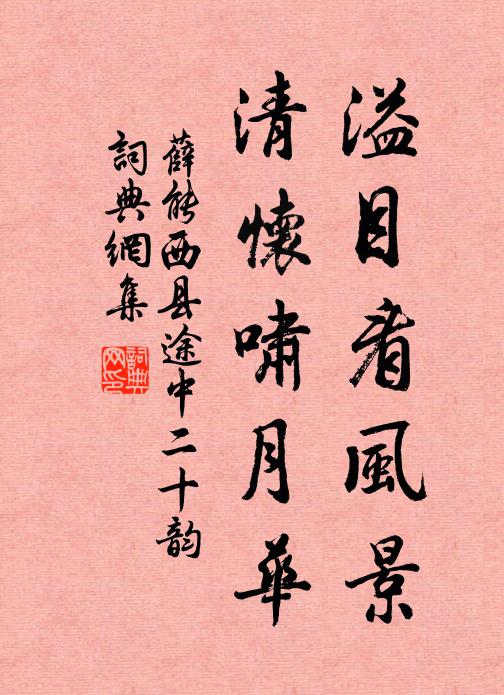 溢目看風景
清懷嘯月華
薛能西县途中二十韵
詞典網集
詞典網印